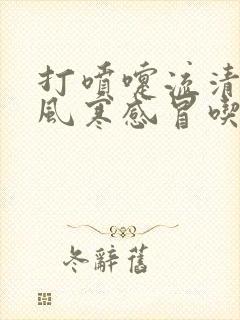 打噴嚏流清
風寒感冒喫
冬辭舊